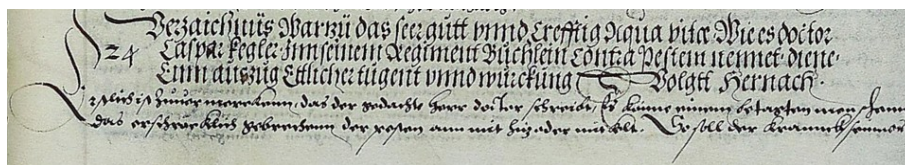 Verzaichnüs Warzü das seer gütt vnnd Crefftig Aqua vitæ. Wie es doctor
24 Caspar kegler Jnn seinem Regiment Büchlein Contra Pestem nennet. diene.
Einn auszüg Ettlicher tügent vnnd würckung Volgtt Hernach.
Erstlich ist zuuor merckenn, das der gedachte herr doctor schreibt, Es künne einem betagten menschenn
das erschröcklich gebrechenn der pesten ann mit hitz oder . So soll der kranncksein